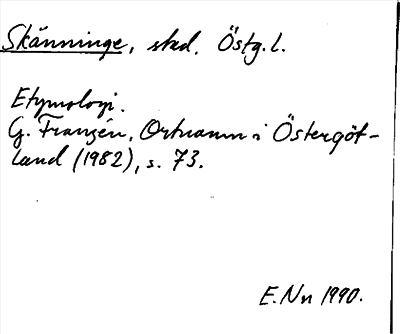 Skänninge, stad. Östg. l.
Etymologi.
G. Franzén, Ortnamn i Östergöt-
land (1982), s. 73.
E. Nn 1990.